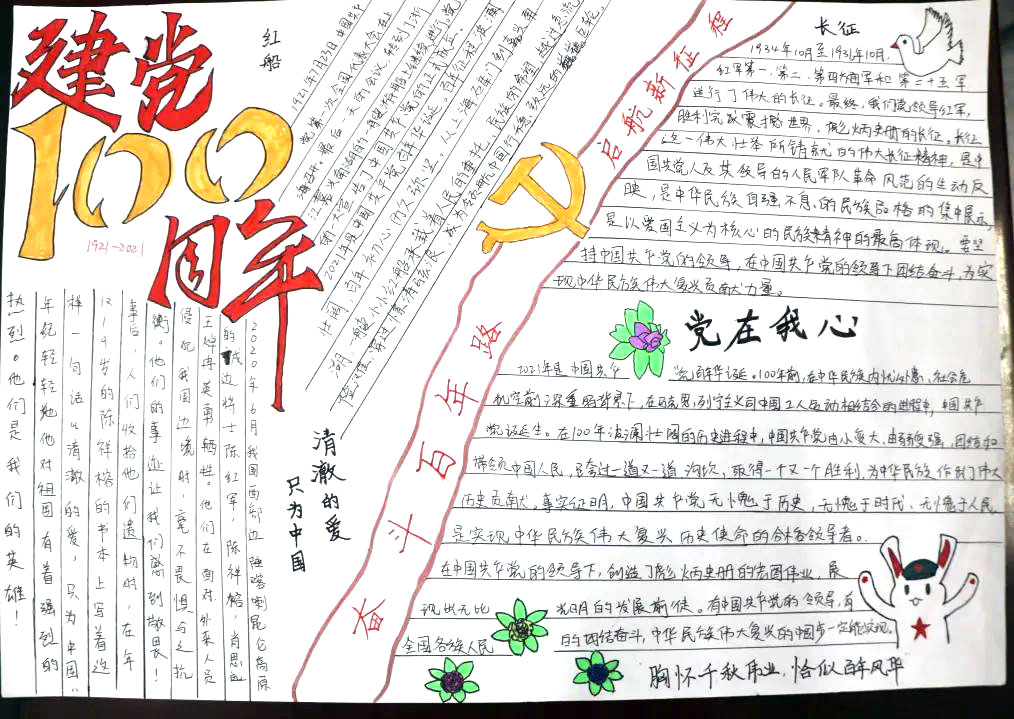 建党
100
周年
1921-2021
红船
1921年7月23日中国共产
党第一次全国代表大会在上
海召开。最后一天的会议，转到了浙
江嘉兴南湖的一艘游船上继续进行，党
的一大宣告了中国共产党的正式成立。
2021年是中国共产党百年华诞。百年征程波澜
壮阔，百年初心历久弥坚。从上海石库门到嘉兴南
湖，一艘小小红船承载着人民的重托、民族的希望，越过急流
险滩，穿过惊涛骇浪，成为领航中国行稳致远的巍巍巨轮。
启航新征程
奋斗百年路
长征
1934年10月至1936年10月，
红军第一、第二、第四方面军和第二十五军
进行了伟大的长征。最终，我们党领导红军，
胜利完成震撼世界、彪炳史册的长征。长征
这一伟大壮举所铸就的伟大长征精神，是中
国共产党人及其领导的人民军队革命风范的生动反
映，是中华民族自强不息的民族品格的集中展示，
是以爱国主义为核心的民族精神的最高体现。要坚
持中国共产党的领导，在中国共产党的领导下团结奋斗，为实
现中华民族伟大复兴贡献力量。
党在我心
2021年是中国共产党百年华诞。100年前，在中华民族内忧外患、社会危
机空前深重的背景下，在马克思列宁主义同中国工人运动相结合的进程中，中国共产
党诞生。在100年波澜壮阔的历史进程中，中国共产党由小变大，由弱变强，团结和
带领中国人民，跨过一道又一道沟坎，取得一个又一个胜利，为中华民族作出了伟大
历史贡献。事实证明，中国共产党无愧于历史、无愧于时代、无愧于人民，
是实现中华民族伟大复兴历史使命的合格领导者。
在中国共产党的领导下，创造了彪炳史册的宏图伟业，展
现出无比光明的发展前途。有中国共产党的领导，有
全国各族人民的团结奋斗，中华民族伟大复兴的中国梦一定能实现。
胸怀千秋伟业，恰似百年风华
清澈的爱
只为中国
2020年6月我国西部边陲喀喇昆仑高原
的戍边将士陈红军，陈祥榕，肖思远
王焯冉英勇牺牲。他们在面对外来人员
侵犯我国边境时，毫不畏惧与之抗
衡。他们的事迹让我们感到敬畏！
事后，人们收拾他们遗物时，在年
仅19岁的陈祥榕的书本上写着这
样一句话“清澈的爱，只为中国”
年纪轻轻她他对祖国有着强烈的
热烈。他们是我们的英雄！